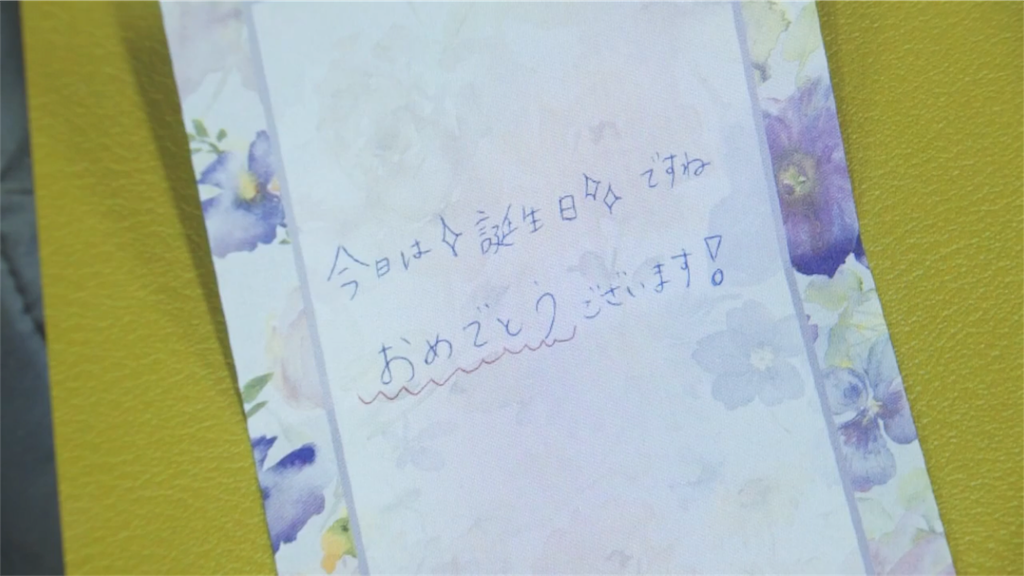 今日は✧誕生日✧✧ですね
おめでとうございます!